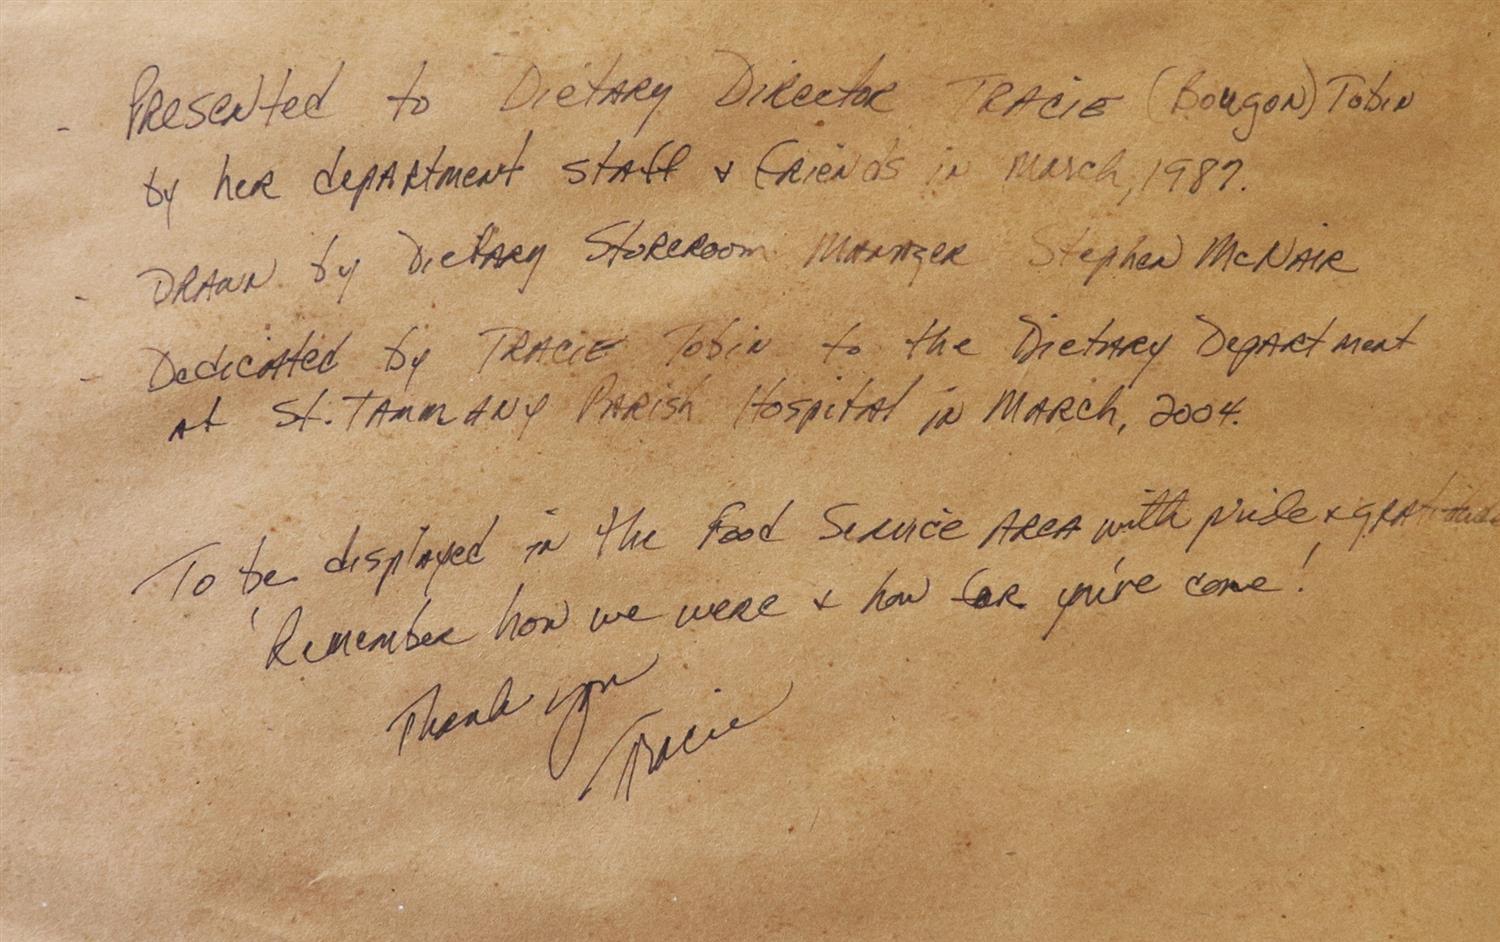 - Presented to Dietary Director Tracie (Bougon) Tobin
by her department staff & friends in March, 1987.
- Drawn by Dietary Storeroom Manager Stephen McNair
- Dedicated by Tracie Tobin to the Dietary Department
at St. Tammany Parish Hospital in March, 2004.
To be displayed in the Food Service Area with pride & gratitude
'Remember how we were & how far you've come!
Thank you
Tracie